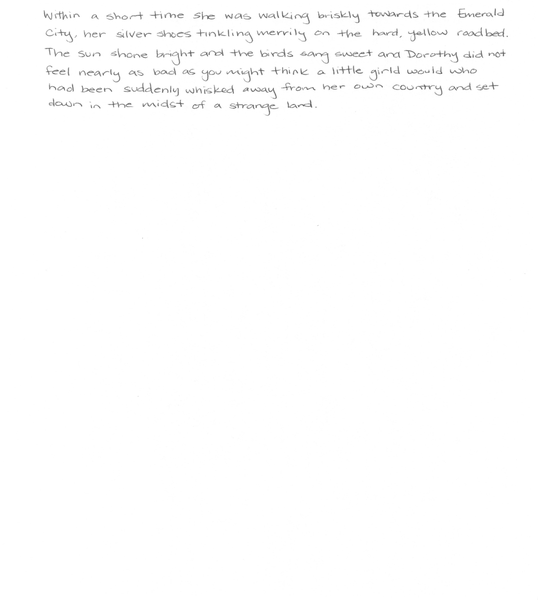 Within a short time she was walking briskly towards the Emerald
City, her silver shoes tinkling merrily on the hard, yellow roadbed.
The sun shone bright and the birds sang sweet and Dorothy did not
feel nearly as bad as you might think a little girld would who
had been suddenly whisked away from her own country and set
down in the midst of a strange land.